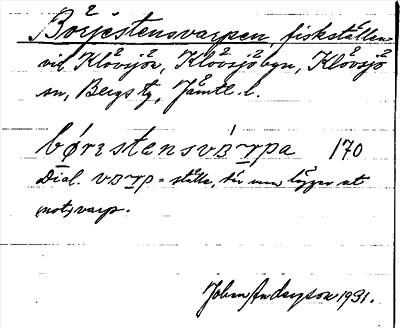 Börjestensvarpen fiskställen
vid Klövsjön, Klövsjö byn, Klövsjö
sn, Bergs tg, Jämtl. l.
bǿrɪstensvʙ́rpa 170
Dial. vʙrp = ställe, där man lägger ut
(not)varp.
John Anderson 1931.